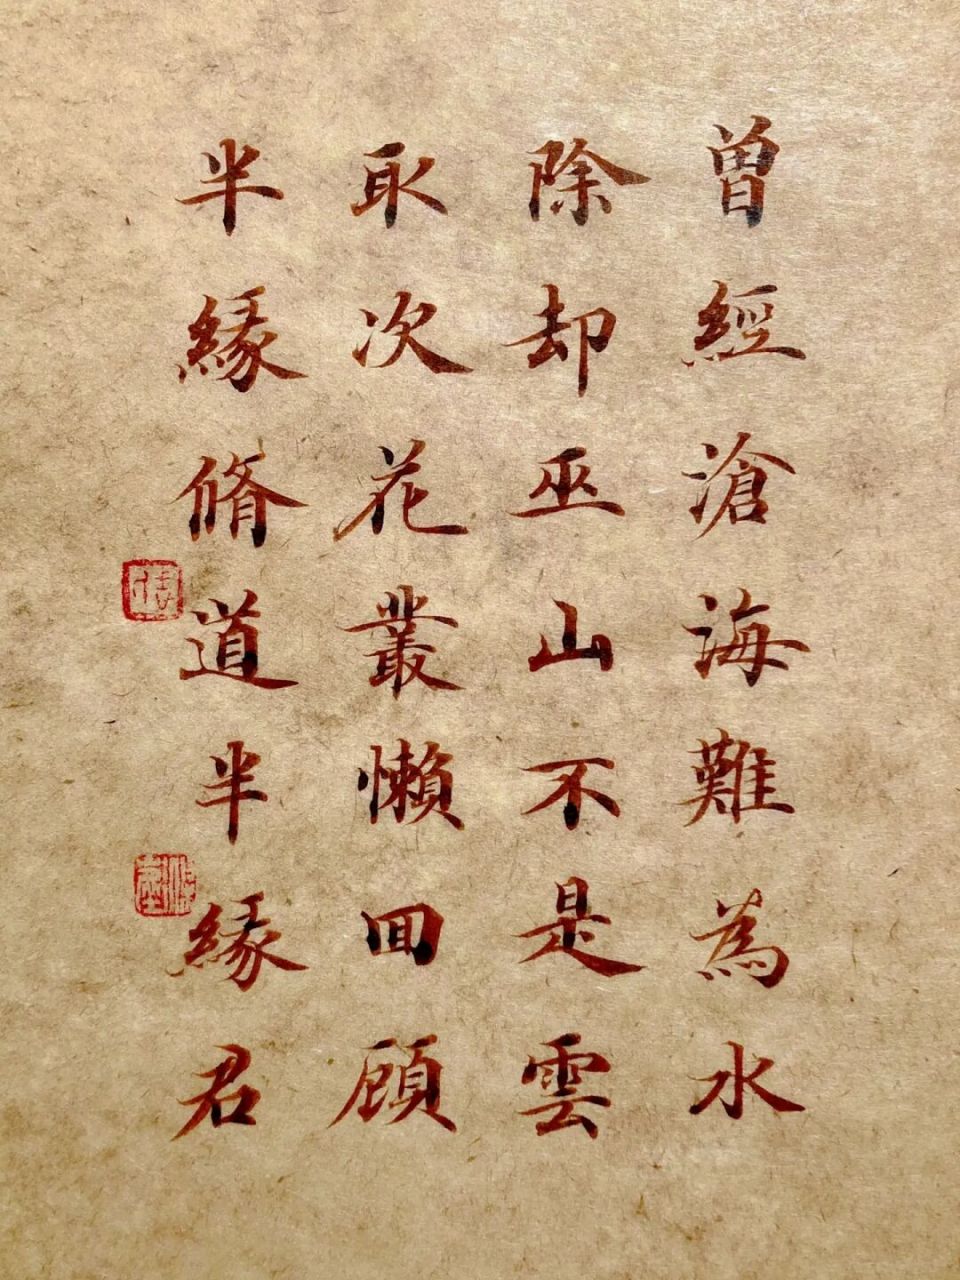 曾經滄海難為水
除却巫山不是雲
取次花叢懶回顧
半緣脩道半緣君